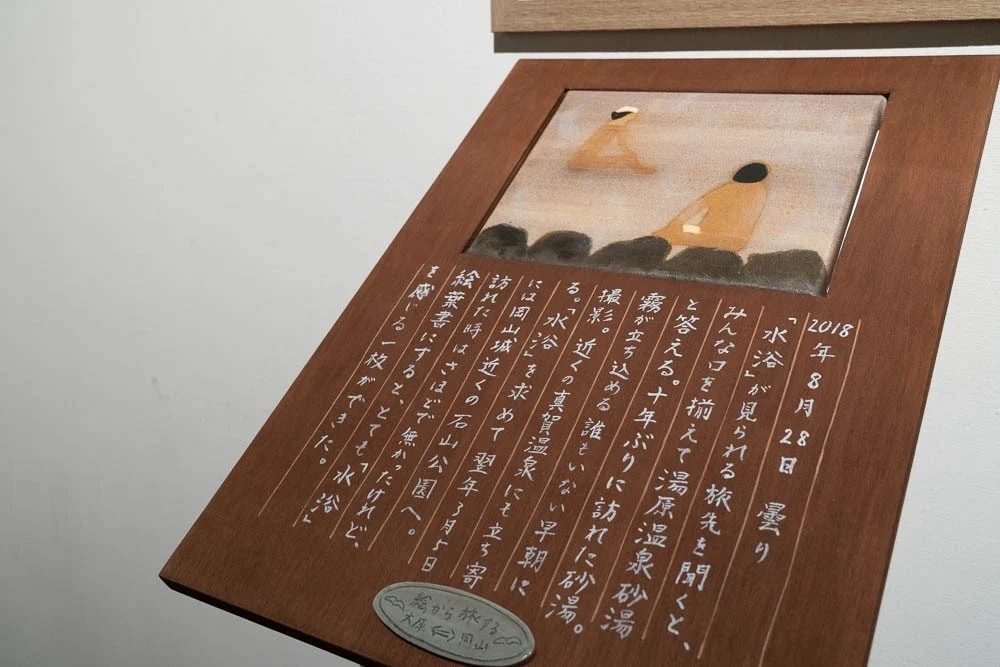 2018年8月28日 曇り
「水浴」が見られる旅先を聞くと、
みんな口を揃えて湯原温泉砂湯
と答える。十年ぶりに訪れた砂湯。
霧が立ち込める誰もいない早朝に
撮影。近くの真賀温泉にも立ち寄
る。「水浴」を求めて翌年3月5日
には岡山城近くの石山公園へ。
訪れた時はさほどで無かったけれど、
絵葉書にすると、とても「水浴」
を感じる一枚ができた。
絵から旅する
大原⇔岡山